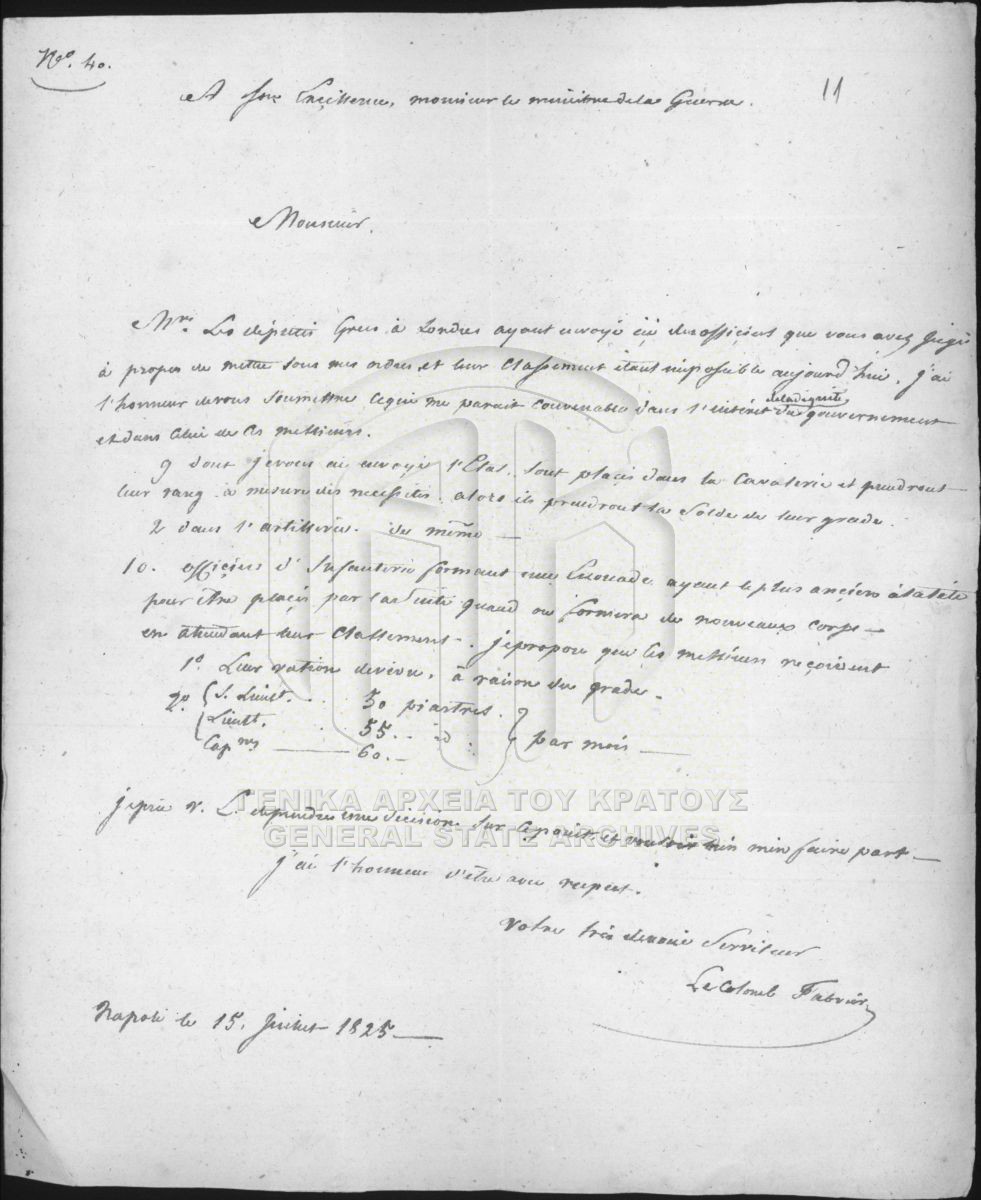 N.o 40.
11
A Son Excellence, monsieur le ministre de la Guerre.
Monsieur.
Mrs. Les députés Grecs à Londres ayant envoyé içi des officiers que vous avez jugé
à propos de mettre sous mes ordres et leur classement étant impossible aujourd'hui, j'ai
l'honneur de vous soumettre ce qui me parait convenable dans l'intérêt de la dignité du gouvernement
et dans celui de ces messieurs.
9 dont je vous ai envoyé l'Etat. sont placés dans la Cavalerie et prendront
leur rang à mesure des necéssités. alors ils prendront la solde de leur grade.
2 dans l'artillerie. de même —
10. officiers d'Infanterie formant une Escouade ayant le plus ancien à la tête
pour être placés par la suite quand on formera de nouveaux corps —
en attendant leur classement. je propose que ces messieurs reçoivent
1o Leur ration de vivre, à raison du grade.
2o. S. Lieut. . . 50 piastres.
Lieutt. . 55. . id . par mois —
Capnes — 60. —
je prie V. E. de prendre une décision sur ce point, et vouloir bien m'en faire part —
j'ai l'honneur d'être avec respect.
Votre très dévoué Serviteur
Le Colonel Fabvier
Napoli le 15. Juillet 1825. —
ΓΕΝΙΚΑ ΑΡΧΕΙΑ ΤΟΥ ΚΡΑΤΟΥΣ
GENERAL STATE ARCHIVES